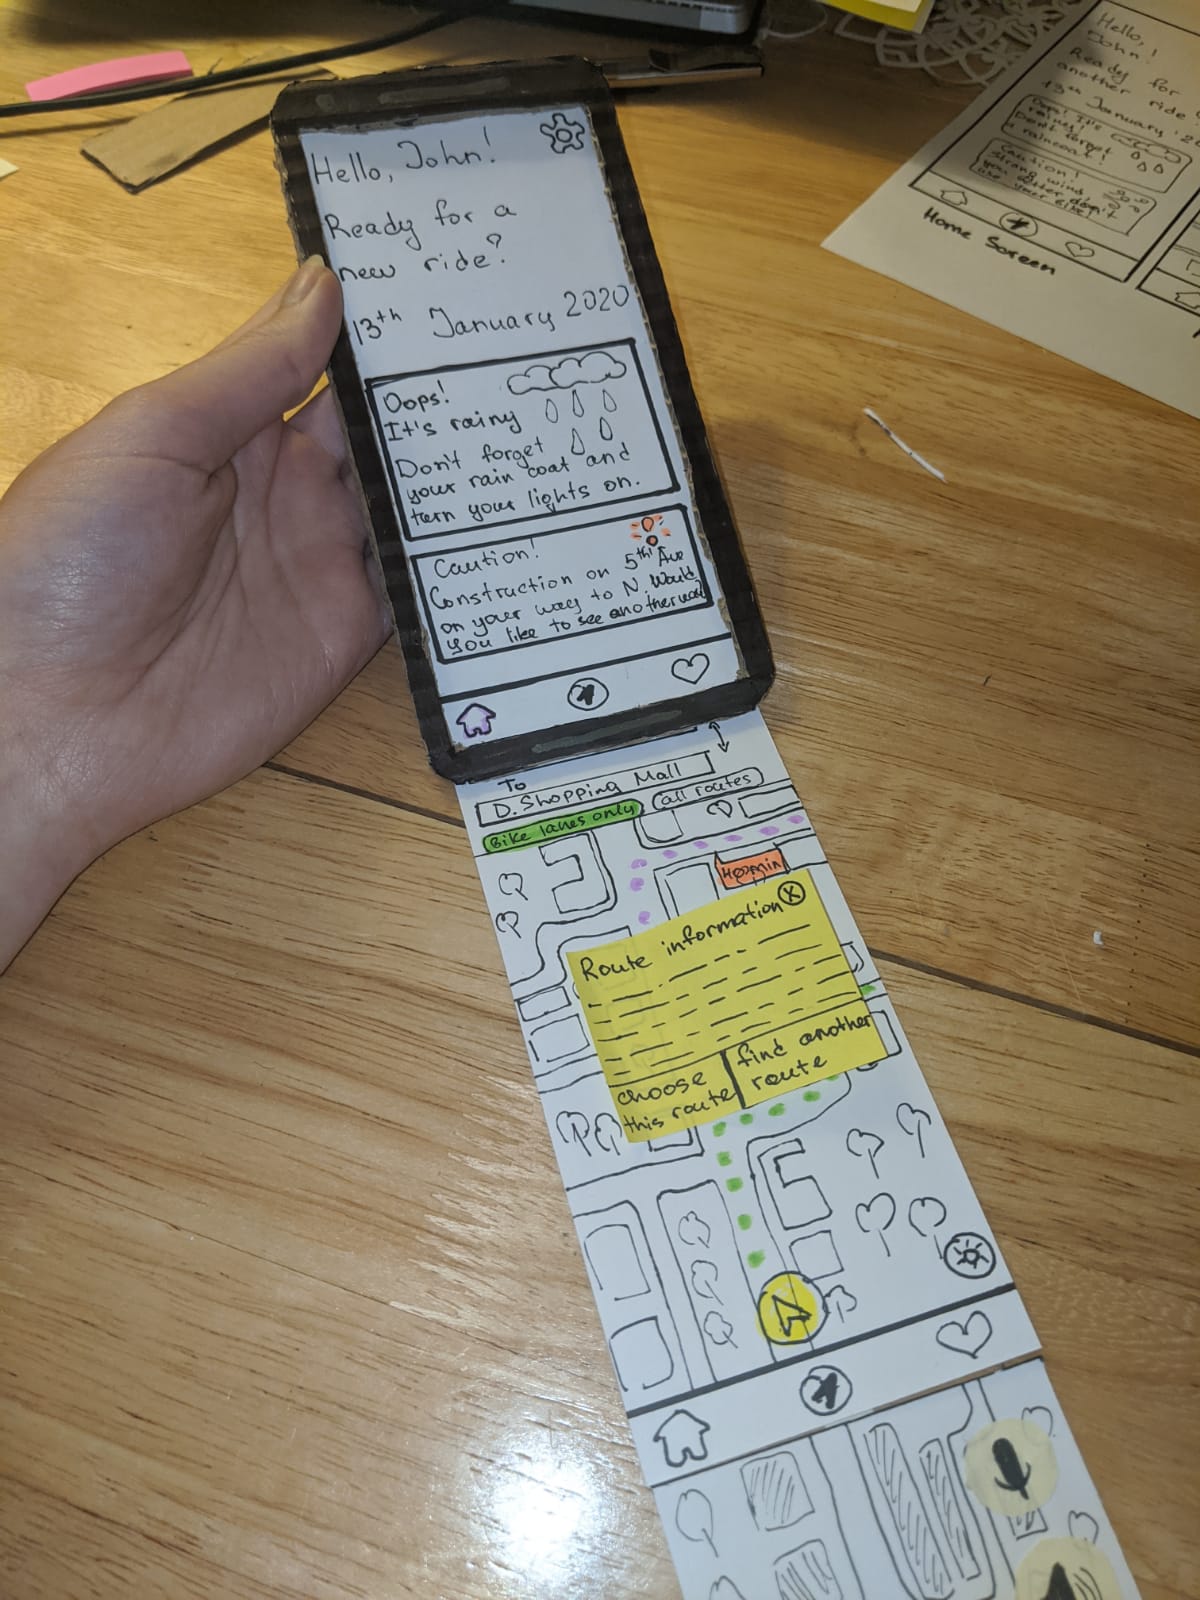 Hello, John!
Ready for a
new ride?
13th January 2020
Oops!
It's rainy
Don't forget
your rain coat and
turn your lights on.
Caution!
Construction on 5th Ave
on your way to N. Would
you like to see another way?
To
D. Shopping Mall
Bike lanes only
all routes
min
Route information X
choose
this route
find another
route
Hello,
John!
Ready for
another ride
13th January 20
Oops! It's
rainy!
Don't forget
a raincoat!
Caution!
Strong wind
you better don't
use your bike!
Home Screen